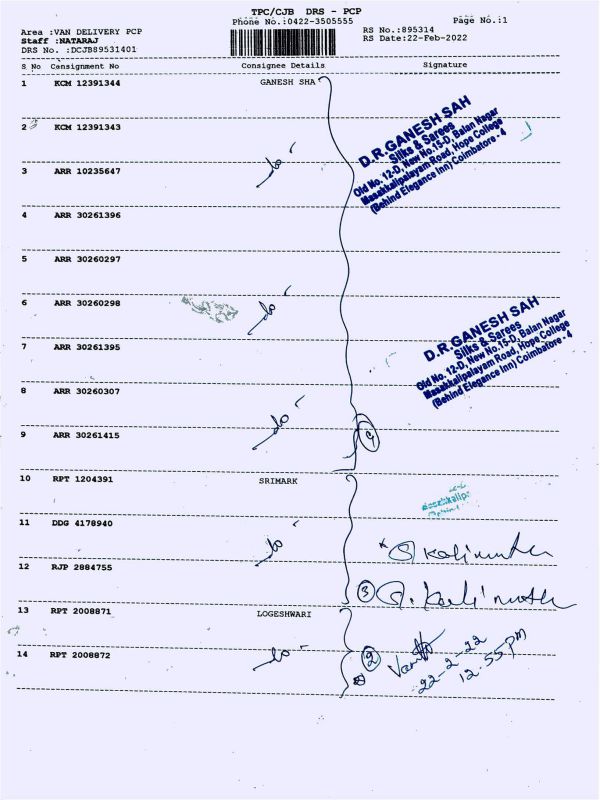 TPC/CJB DRS - PCP
Phone No.:0422-3505555
Page No.:1
Area :VAN DELIVERY PCP
RS No.:895314
Staff :NATARAJ
RS Date:22-Feb-2022
DRS No. :DCJB89531401
S No Consignment No Consignee Details Signature
1 KCM 12391344 GANESH SHA
2 KCM 12391343
do
3 ARR 10235647
4 ARR 30261396
5 ARR 30260297
6 ARR 30260298
do
7 ARR 30261395
8 ARR 30260307
do
9 ARR 30261415
D.R.GANESH SAH
Silks & Sarees
Old No. 12-D, New No.15-D, Balan Nagar
Masakkalipalayam Road, Hope College
(Behind Elegance Inn) Coimbatore - 4
D.R.GANESH SAH
Silks & Sarees
Old No. 12-D, New No.15-D, Balan Nagar
Masakkalipalayam Road, Hope College
(Behind Elegance Inn) Coimbatore - 4
9
10 RPT 1204391 SRIMARK
11 DDG 4178940
do
12 RJP 2884755
3
13 RPT 2008871 LOGESHWARI
14 RPT 2008872
do
2
22-2-22
12.55 pm